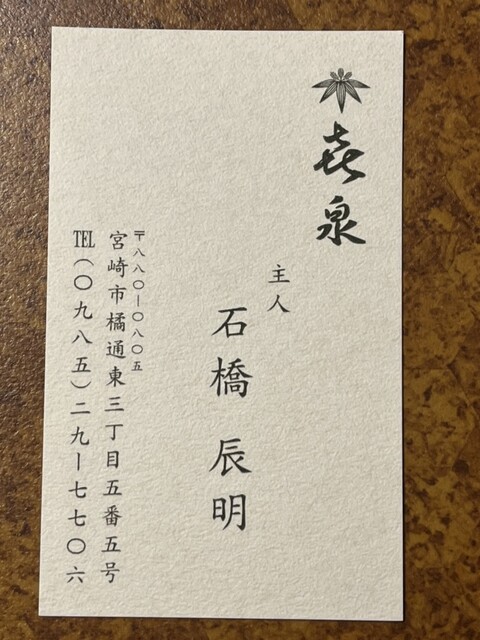 㐂泉
主人
石橋 辰明
〒八八〇ー〇八〇五
宮崎市橘通東三丁目五番五号
TEL(〇九八五)二九ー七七〇六